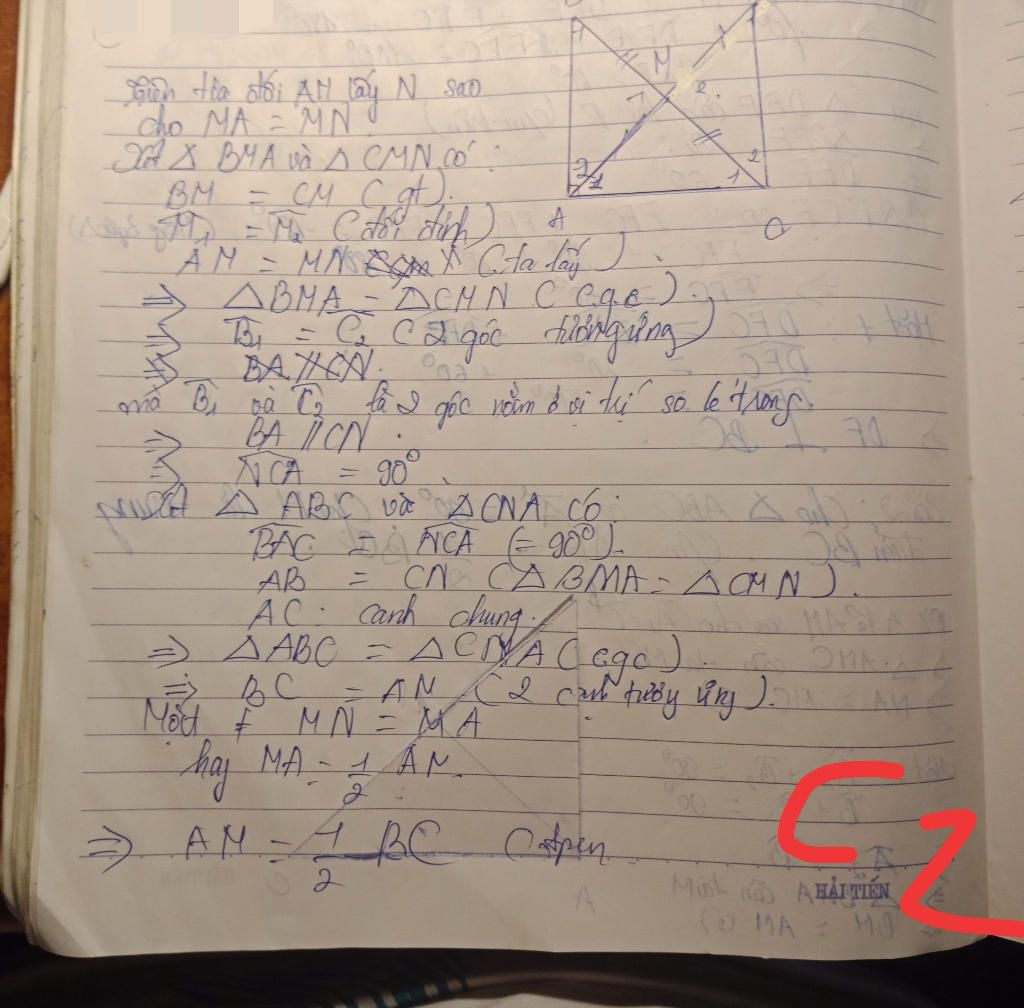 M
1
2
1
2
A
C
Trên tia đối AM lấy N sao
cho MA = MN.
Xét △ BMA và △ CMN có:
BM = CM (gt).
M̂₁ = M̂₂ (đối đỉnh)
AM = MN (ta lấy)
⇒ △BMA = △CMN (cgc).
⇒ B̂₁ = Ĉ₂ (2 góc tương ứng)
⇒ BA // CN.
mà B̂₁ và Ĉ₂ là 2 góc nằm ở vị trí so le trong.
⇒ BA // CN.
⇒ NCA = 90°.
Xét △ ABC và △CNA có:
BAC = NCA (= 90°).
AB = CN (△BMA = △CMN).
AC: cạnh chung.
⇒ △ABC = △CNA (cgc).
⇒ BC = AN (2 cạnh tương ứng).
Mặt ≠ MN = MA
hay MA = 1/2 AN.
⇒ AM = 1/2 BC (đpcm
HẢI TIẾN
C2